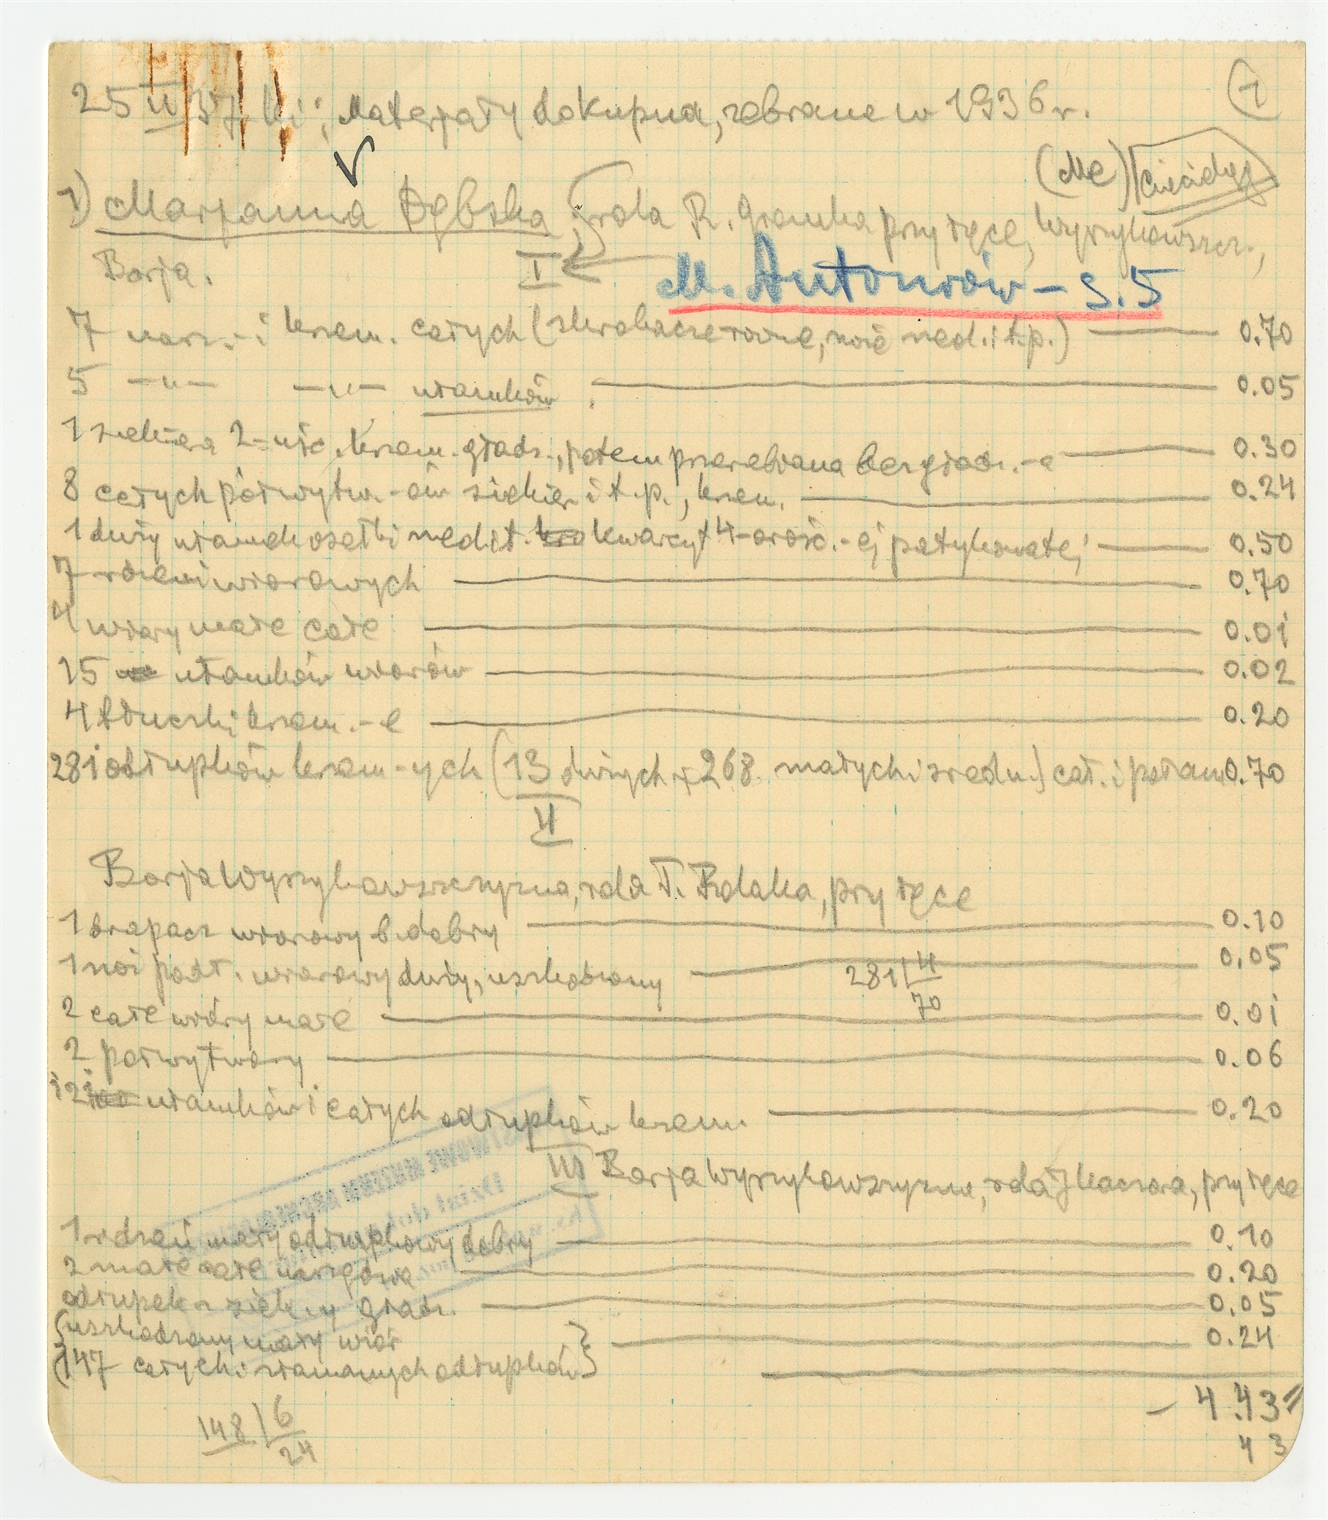 25 II 37. ; Materjały dokupna, zebrane w 1936 r. 1
(Me)
1) Marjanna Dębska rola R. Gromka przy rzęce, Wyrzykowszcz.,
Borja. I M. Antoniów - s. 5
7 narz. i krzem. całych (skrobacze równe, noże ned. i t.p.) 0.70
5 -"- -"- ułamków 0.05
1 siekiera 2-uśc. krzem. gładz., potem przerabiana bez gładz.-a 0.30
8 całych półwytw.-ów siekier i t.p., krzem. 0.24
1 duży ułamek osełki nedit. kwarcyt 4-grość.-ej patykowatej 0.50
7 rdzeni wiórowych 0.70
4 wióry małe całe 0.01
15 ułamków wiórów 0.02
4 tłuczki krzem.-e 0.20
281 odłupków krzem-ych (13 dużych + 268 małych i średn.) cał. i połam 0.70
II
Borja Wyrzykowszczyzna, rola T. Polaka, przy rzęce
1 drapacz wiórowy b. dobry 0.10
1 nóż podł. wiórowy duży, uszkodzony 0.05
281 | 4
70
2 całe wióry małe 0.01
2 półwytwory 0.06
121 ułamków i całych odłupków krzem. 0.20
III Borja Wyrzykowszczyzna, rola J. Kaczora, przy rzęce
1 rdzeń mały odłupkowy dobry 0.10
2 małe całe narzędzia 0.20
odłupek z siek.-y gładz. 0.05
{uszkodzony mały wiór } 0.24
{147 całych i złamanych odłupków}
- 4.43
148 | 6
24
4 3